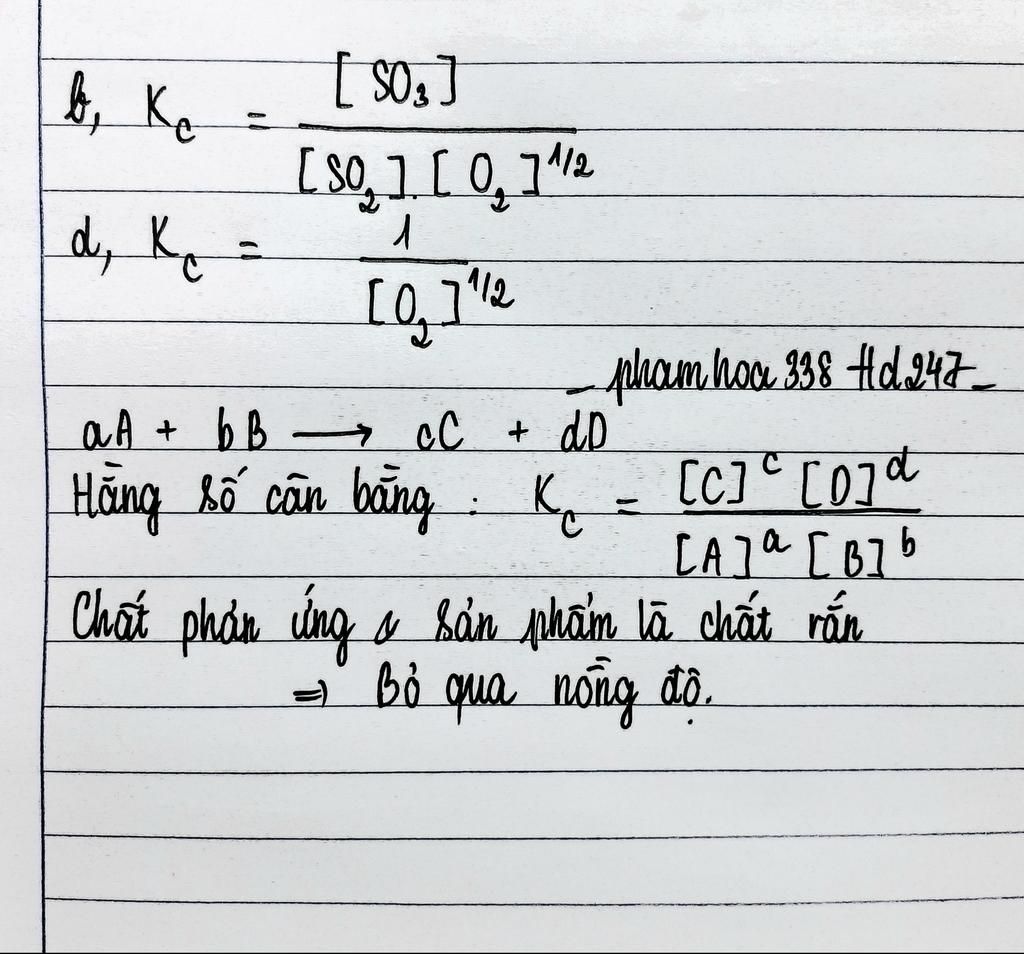 b, Kc = [SO₃] / [SO₂].[O₂]^1/2
d, Kc = 1 / [O₂]^1/2
_ phamhoa338 Hd247_
aA + bB ⟶ cC + dD
Hằng số cân bằng : Kc = [C]^c [D]^d / [A]^a [B]^b
Chất phản ứng & sản phẩm là chất rắn
⇒ Bỏ qua nồng độ.